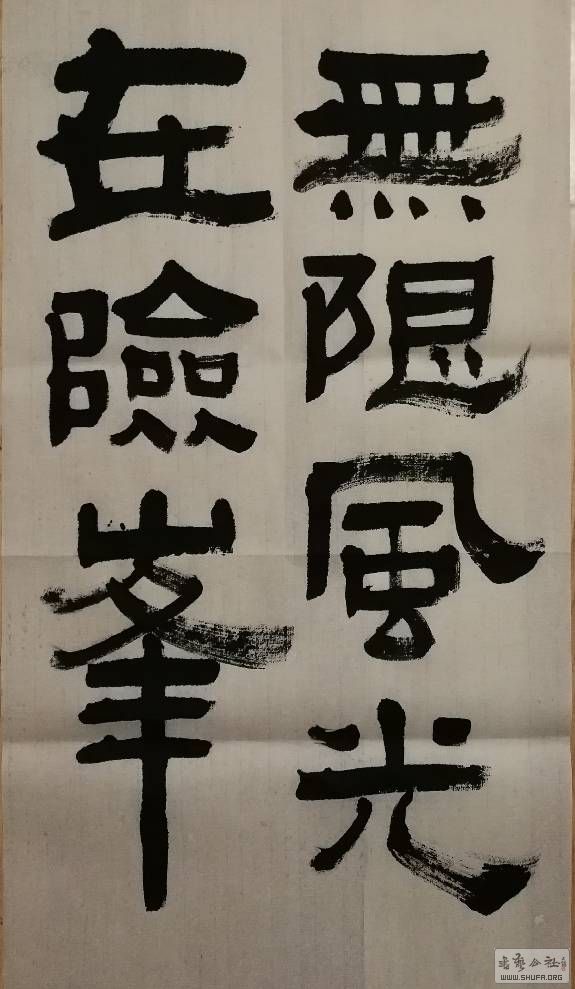 無限風光
在險峯
书艺公社
WWW.SHUFA.ORG